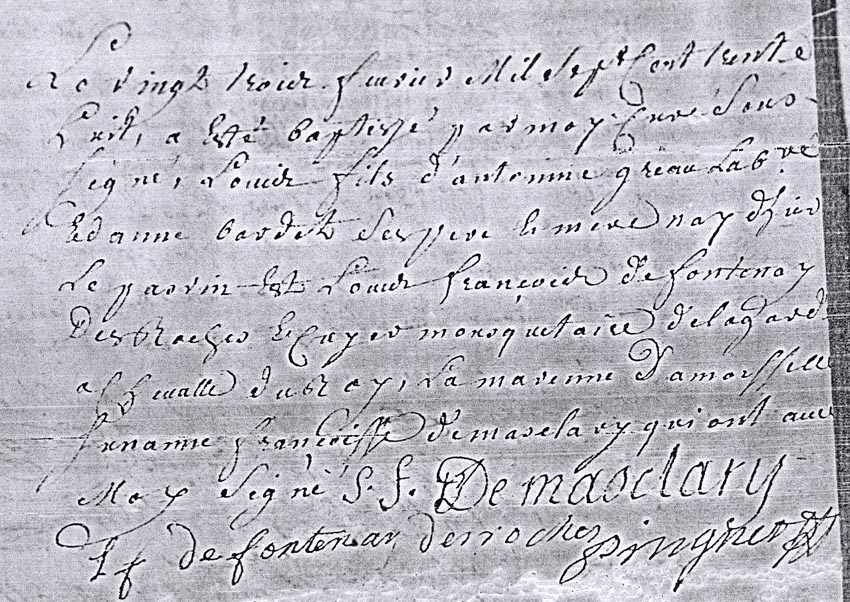 Le vingt troix fevrier Mil sept Cent trente
huit, a esté baptissé par moy Curé Sous
signé, Louix fils d'antoinne greau Lab.re
Et anne bardet ses pere & mere nay d'hier
Le parin est Louix françoix de fontenay
Des Roches Ecuyer mousquetaire de la gard
a Chevalle du Roy, La marenne Damoisselle
françoisse de masclary qui ont avec
Moy Signé S. f. De masclary
L f de fontenay desroches pinguet